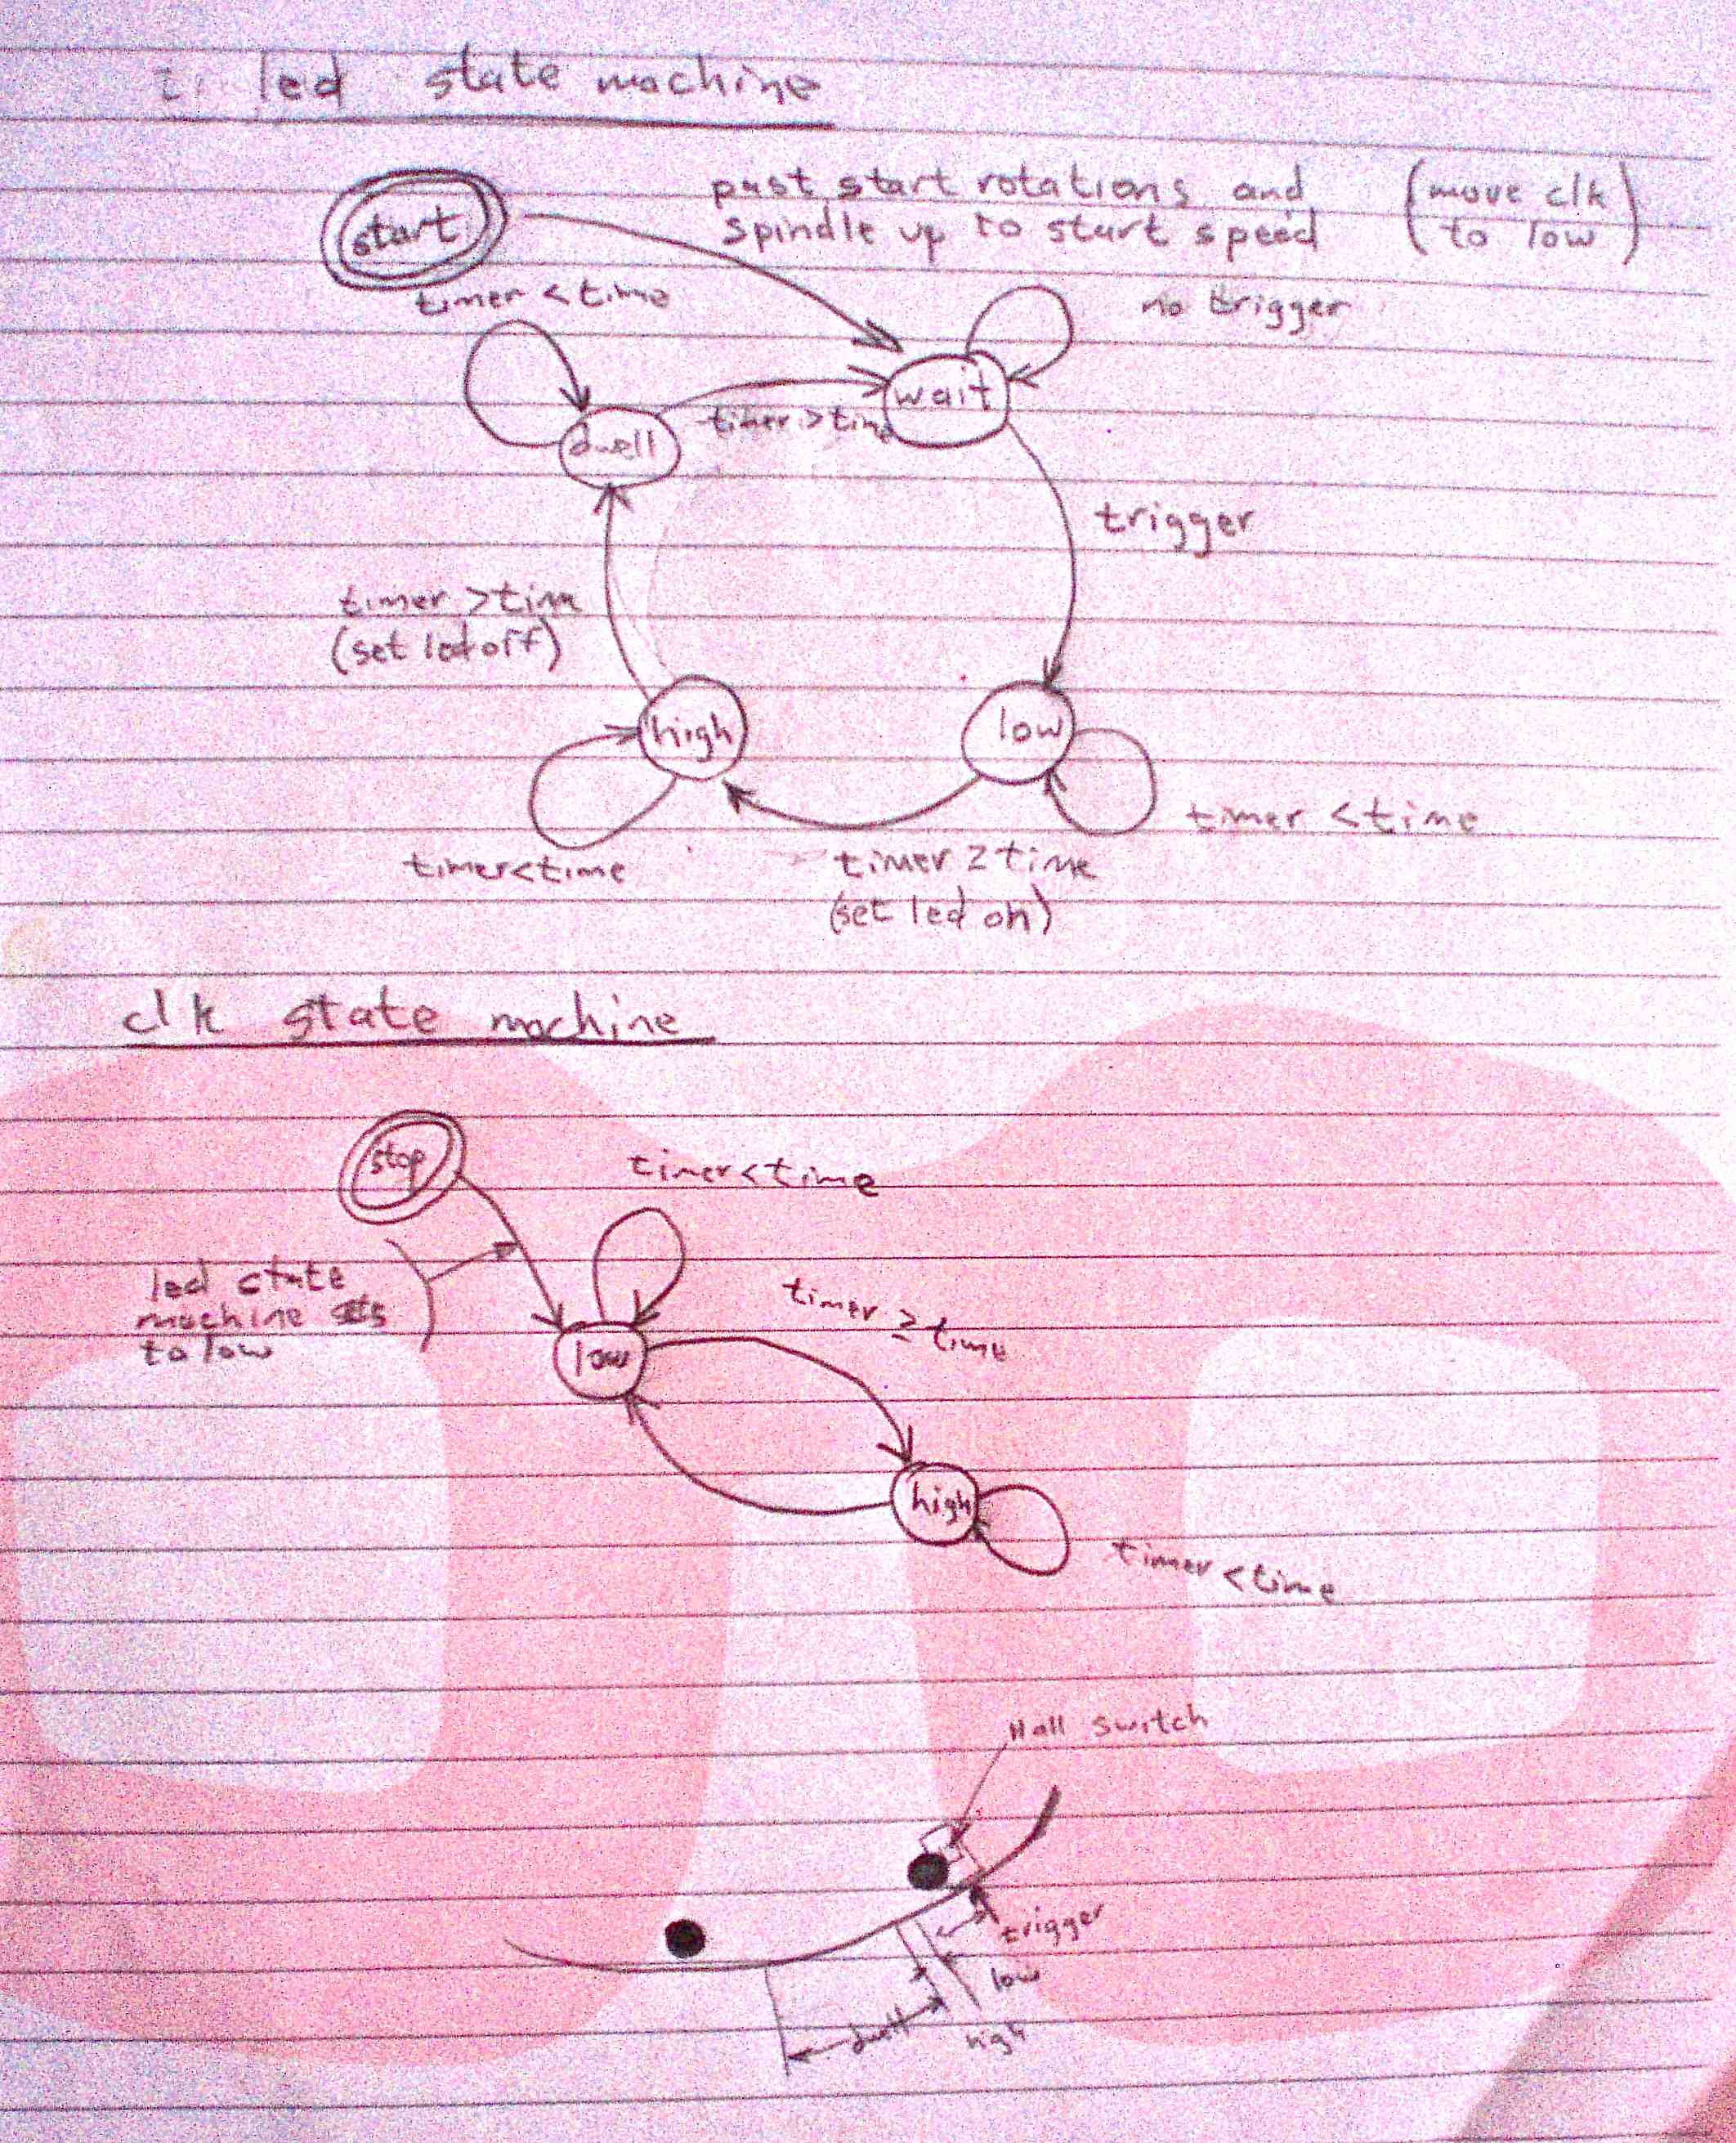 led state machine
start
past start rotations and
spindle up to start speed
(move clk
to low)
timer < time
no trigger
wait
dwell
timer > time
trigger
timer > time
(set led off)
high
low
timer < time
timer < time
timer ≥ time
(set led on)
clk state machine
stop
timer < time
led state
machine sets
to low
timer ≥ time
low
high
timer < time
Hall switch
trigger
low
dwell
high